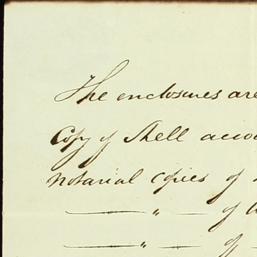 The enclosures are
Copy of Shell accou
notarial copies of
— " — of
— " — of